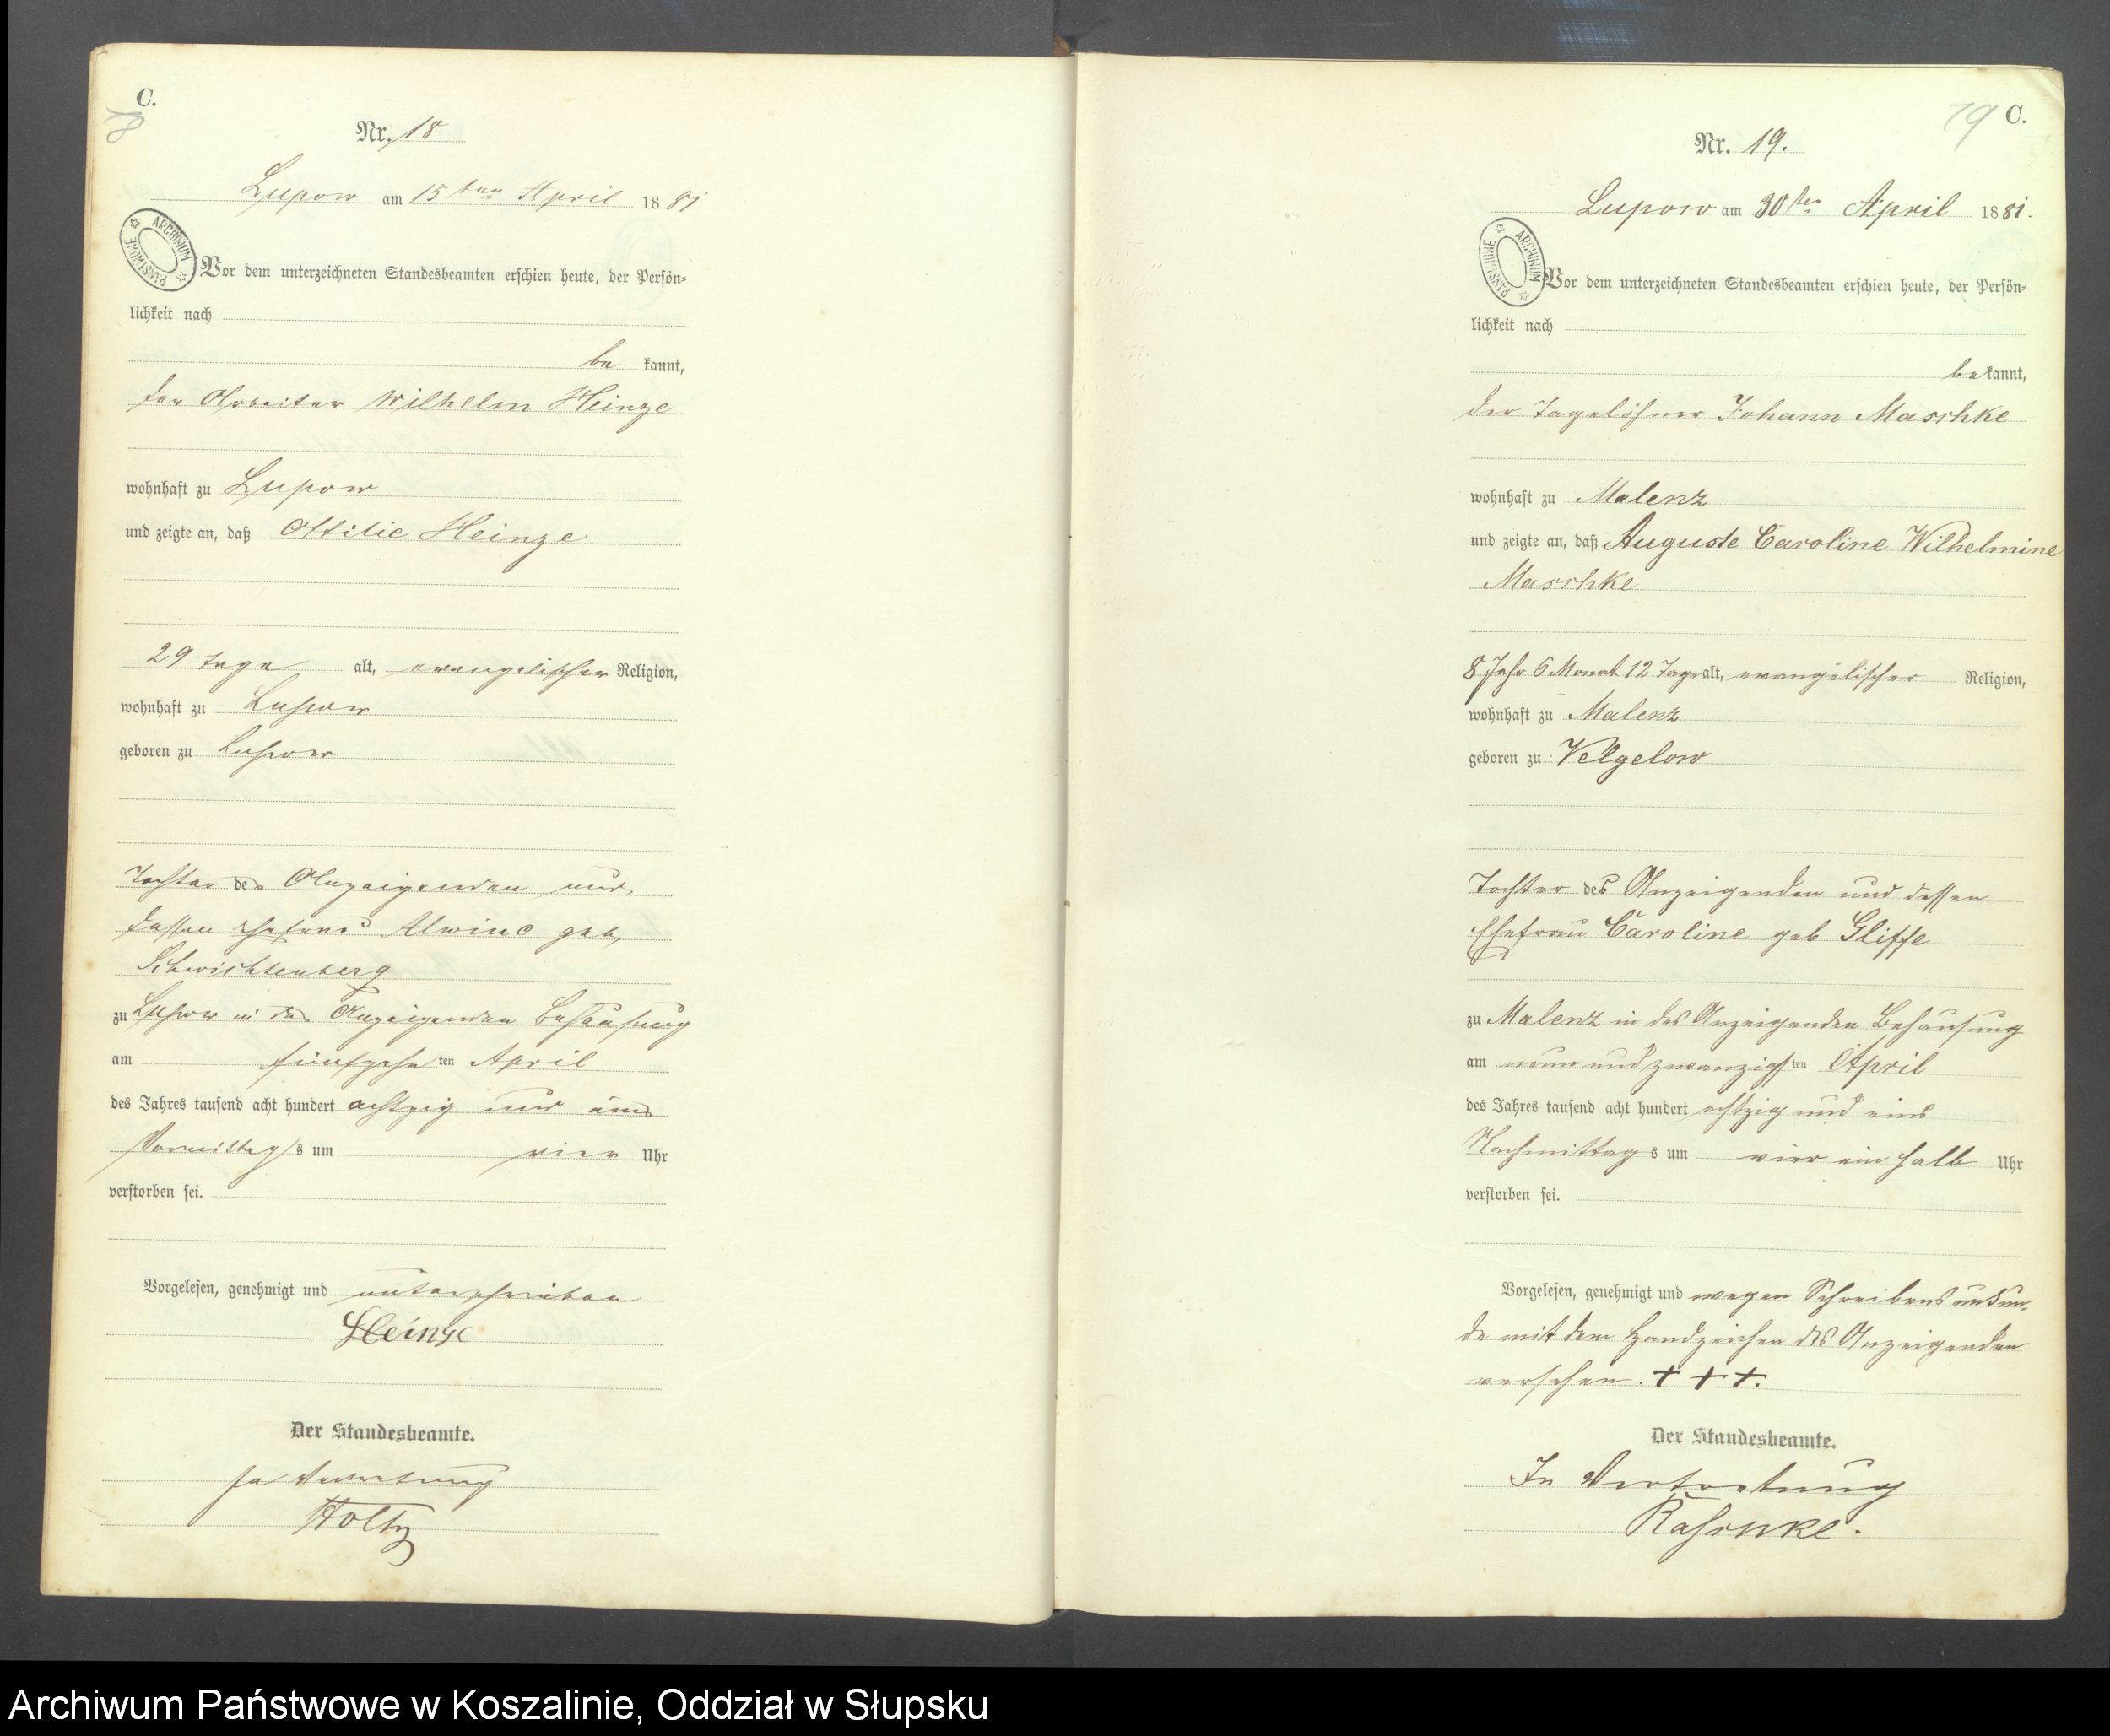 C.
18
Nr. 18
Lupow am 15ten April 1881
ARCHIWUM PAŃSTWOWE
Vor dem unterzeichneten Standesbeamten erschien heute, der Persön-
lichkeit nach
be kannt,
der Arbeiter Wilhelm Heinze
wohnhaft zu Lupow
und zeigte an, daß Ottilie Heinze
29 Tage alt, evangelischer Religion,
wohnhaft zu Lupow
geboren zu Lupow
Tochter des Anzeigenden und
dessen Ehefrau Alwine geb.
Schwichtenberg
zu Lupow in des Anzeigenden Behausung
am fünfzehnten April
des Jahres tausend acht hundert achtzig und eins
Vormittags um vier Uhr
verstorben sei.
Vorgelesen, genehmigt und unterschrieben
Heinze
Der Standesbeamte.
In Vertretung
Holtz
19 C.
Nr. 19.
Lupow am 30ten April 1881.
ARCHIWUM PAŃSTWOWE
Vor dem unterzeichneten Standesbeamten erschien heute, der Persön-
lichkeit nach
bekannt,
der Tagelöhner Johann Maschke
wohnhaft zu Malenz
und zeigte an, daß Auguste Caroline Wilhelmine
Maschke
8 Jahr 6 Monat 12 Tage alt, evangelischer Religion,
wohnhaft zu Malenz
geboren zu Velgelow
Tochter des Anzeigenden und dessen
Ehefrau Caroline geb Gliffe
zu Malenz in des Anzeigenden Behausung
am neun und zwanzigsten April
des Jahres tausend acht hundert achtzig und eins
Nachmittags um vier ein halb Uhr
verstorben sei.
Vorgelesen, genehmigt und wegen Schreibensunkun-
de mit dem Handzeichen des Anzeigenden
versehen. + + +.
Der Standesbeamte.
In Vertretung
Archiwum Państwowe w Koszalinie, Oddział w Słupsku